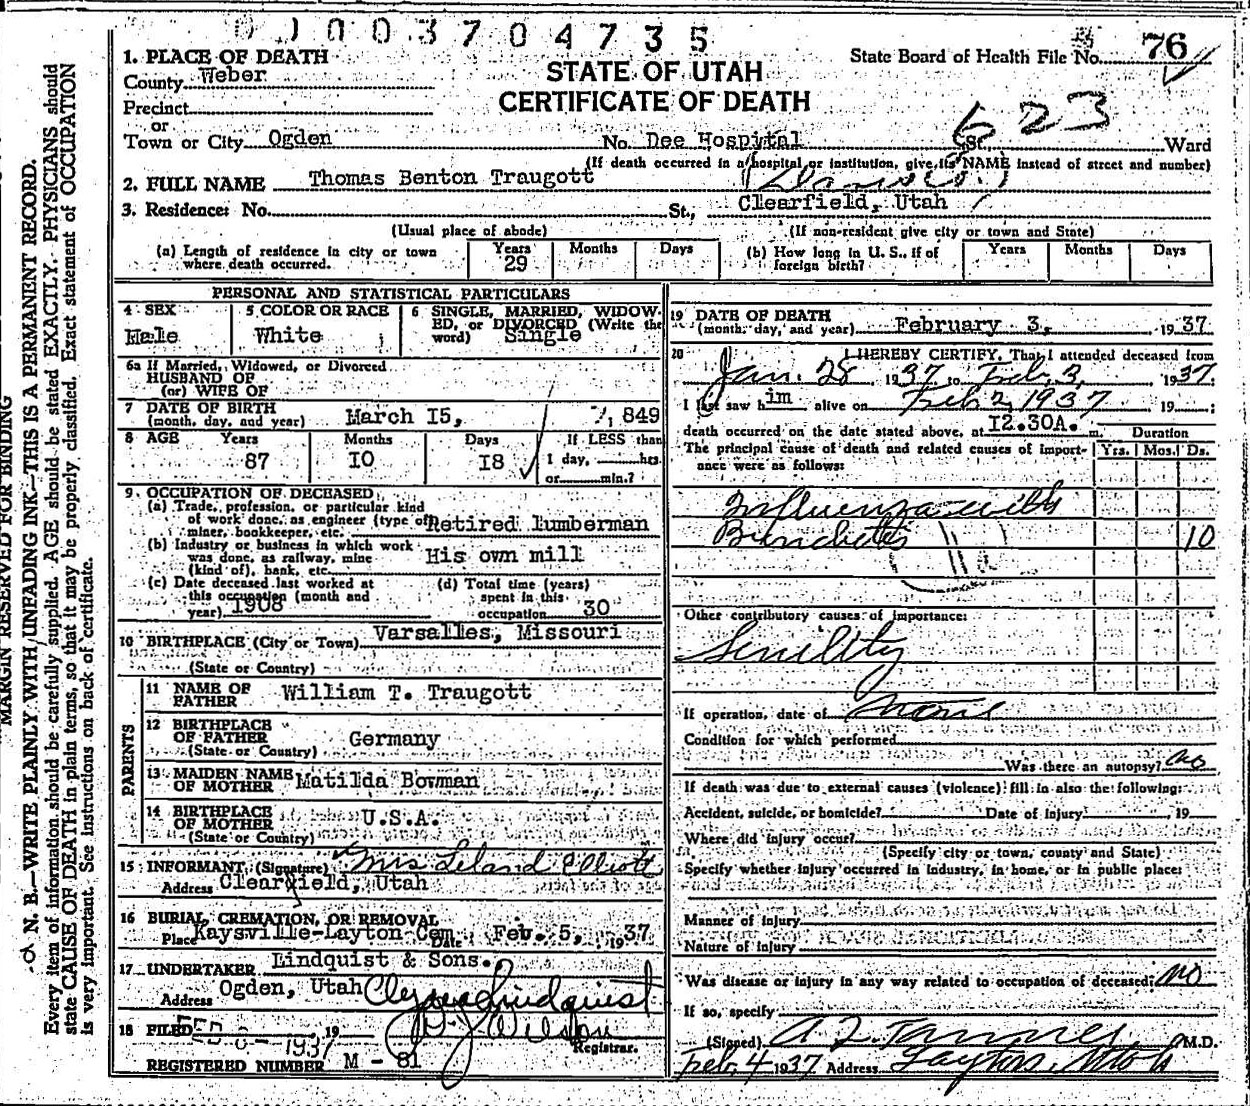 1003704735
1. PLACE OF DEATH
County Weber
Precinct
or
Town or City Ogden
STATE OF UTAH
CERTIFICATE OF DEATH
State Board of Health File No. 76
623
No. Dee Hospital St. Ward
(If death occurred in a hospital or institution, give its NAME instead of street and number)
2. FULL NAME Thomas Benton Traugott
3. Residence: No. St., Clearfield, Utah
(Usual place of abode) (If non-resident give city or town and State)
(a) Length of residence in city or town where death occurred. Years 29 Months Days
(b) How long in U. S., if of foreign birth? Years Months Days
PERSONAL AND STATISTICAL PARTICULARS
4 SEX Male
5 COLOR OR RACE White
6 SINGLE, MARRIED, WIDOWED, or DIVORCED (Write the word) Single
6a If Married, Widowed, or Divorced
HUSBAND OF
(or) WIFE OF
7 DATE OF BIRTH
(month, day, and year) March I5, 1,849
8 AGE Years 87 Months IO Days I8
If LESS than
1 day, hrs.
or min.?
9 OCCUPATION OF DECEASED
(a) Trade, profession, or particular kind
of work done, as engineer (type of
miner, bookkeeper, etc. Retired lumberman
(b) Industry or business in which work
was done, as railway, mine
(kind of), bank, etc. His own mill
(c) Date deceased last worked at
this occupation (month and
year) 1908
(d) Total time (years)
spent in this
occupation 30
10 BIRTHPLACE (City or Town) Varsalles, Missouri
(State or Country)
PARENTS
11 NAME OF
FATHER William T. Traugott
12 BIRTHPLACE
OF FATHER Germany
(State or Country)
13 MAIDEN NAME
OF MOTHER Matilda Bowman
14 BIRTHPLACE
OF MOTHER U.S.A.
(State or Country)
15 INFORMANT (Signature) Mrs Leland Elliott
Address Clearfield, Utah
16 BURIAL, CREMATION, OR REMOVAL
Place Kaysville-Layton Cem Date Feb. 5, 1937
17 UNDERTAKER Lindquist & Sons.
Address Ogden, Utah Clyde Lindquist
18 FILED 1937 19
Registrar.
REGISTERED NUMBER M - 81
19 DATE OF DEATH
(month, day, and year) February 3, 1937
20 I HEREBY CERTIFY, That I attended deceased from
Jan. 28 1937 to Feb. 3, 1937.
I last saw him alive on Feb 2, 1937 19 ;
death occurred on the date stated above, at I2.30A. m. Duration
The principal cause of death and related causes of importance were as follows: Yrs. Mos. Ds.
Influenza with
Bronchitis 10
Other contributory causes of importance:
Senility
If operation, date of none
Condition for which performed
Was there an autopsy? no
If death was due to external causes (violence) fill in also the following:
Accident, suicide, or homicide? Date of injury , 19
Where did injury occur?
(Specify city or town, county and State)
Specify whether injury occurred in industry, in home, or in public place:
Manner of injury
Nature of injury
Was disease or injury in any way related to occupation of deceased? no
If so, specify
(Signed) A Z. Tanner, M.D.
Feb. 4 1937 Address Layton, Utah
MARGIN RESERVED FOR BINDING
N. B.—WRITE PLAINLY WITH UNFADING INK—THIS IS A PERMANENT RECORD.
Every item of information should be carefully supplied. AGE should be stated EXACTLY. PHYSICIANS should
state CAUSE OF DEATH in plain terms, so that it may be properly classified. Exact statement of OCCUPATION
is very important. See instructions on back of certificate.